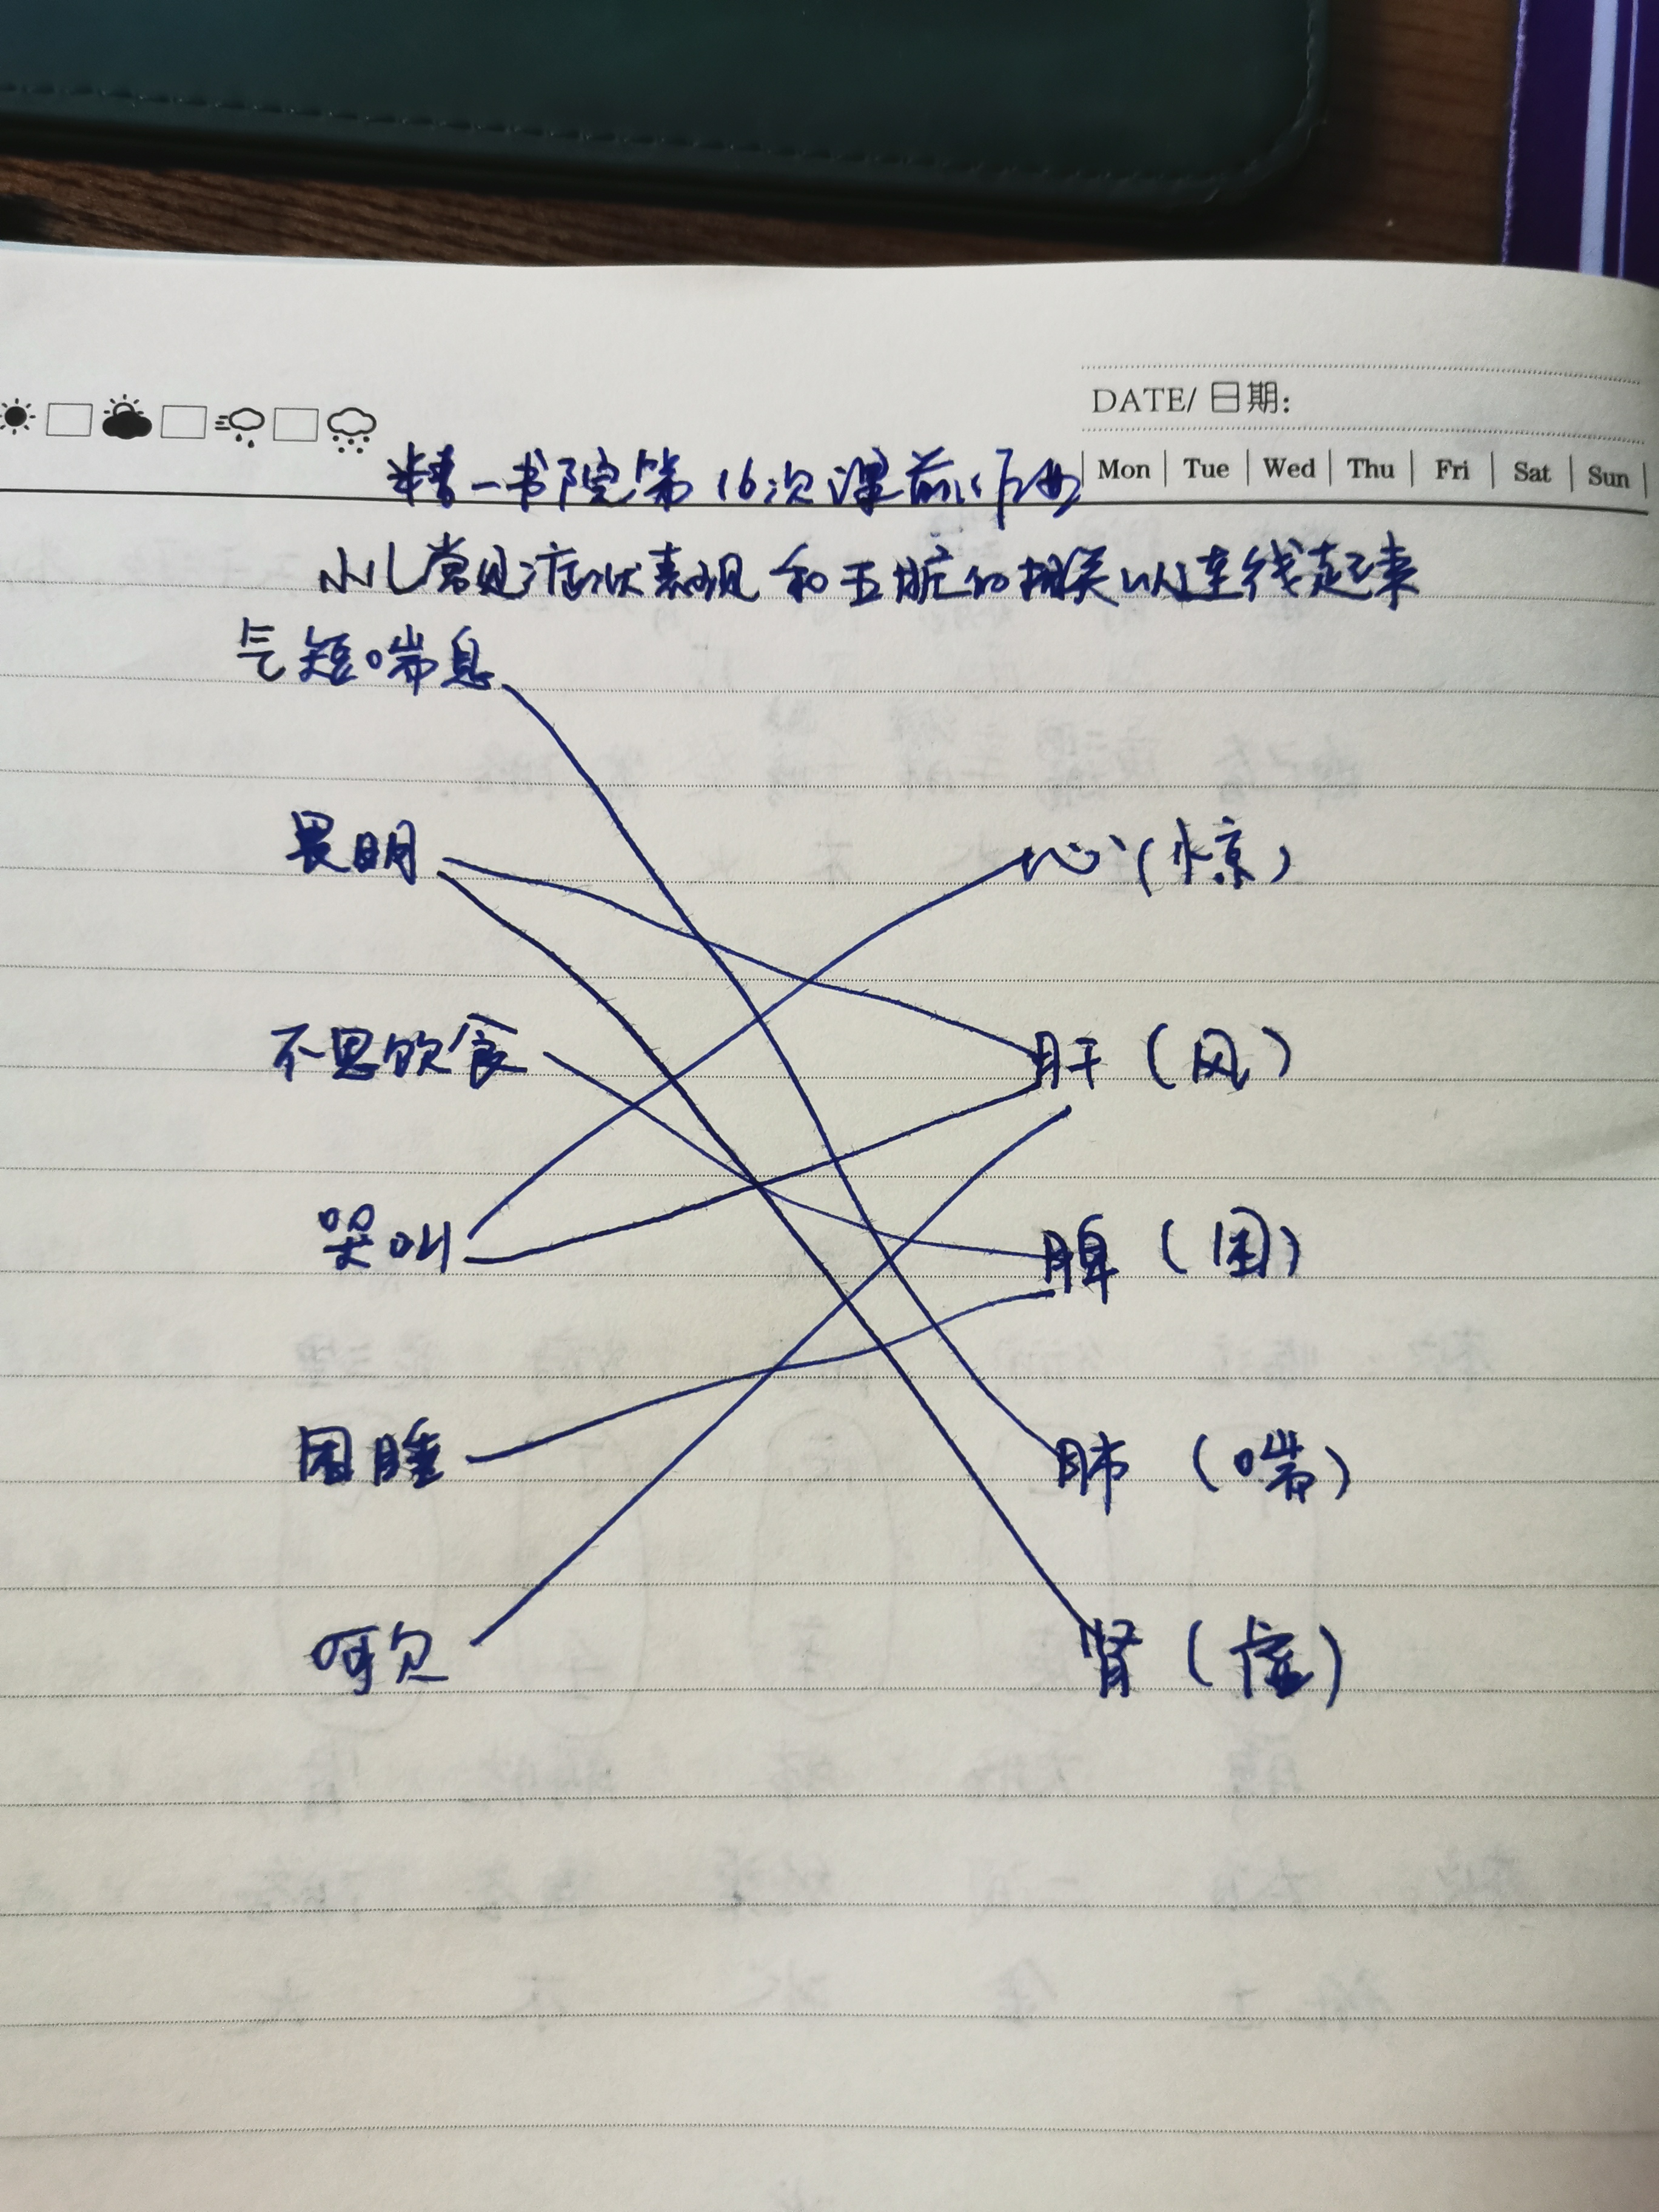 DATE/日期:
Mon Tue Wed Thu Fri Sat Sun
精一书院第16次课前作业
小儿常见症状表现和五脏的相关以连线起来
气短喘息
畏明 心(惊)
不思饮食 肝(风)
哭叫 脾(困)
困睡 肺(喘)
呵欠 肾(虚)